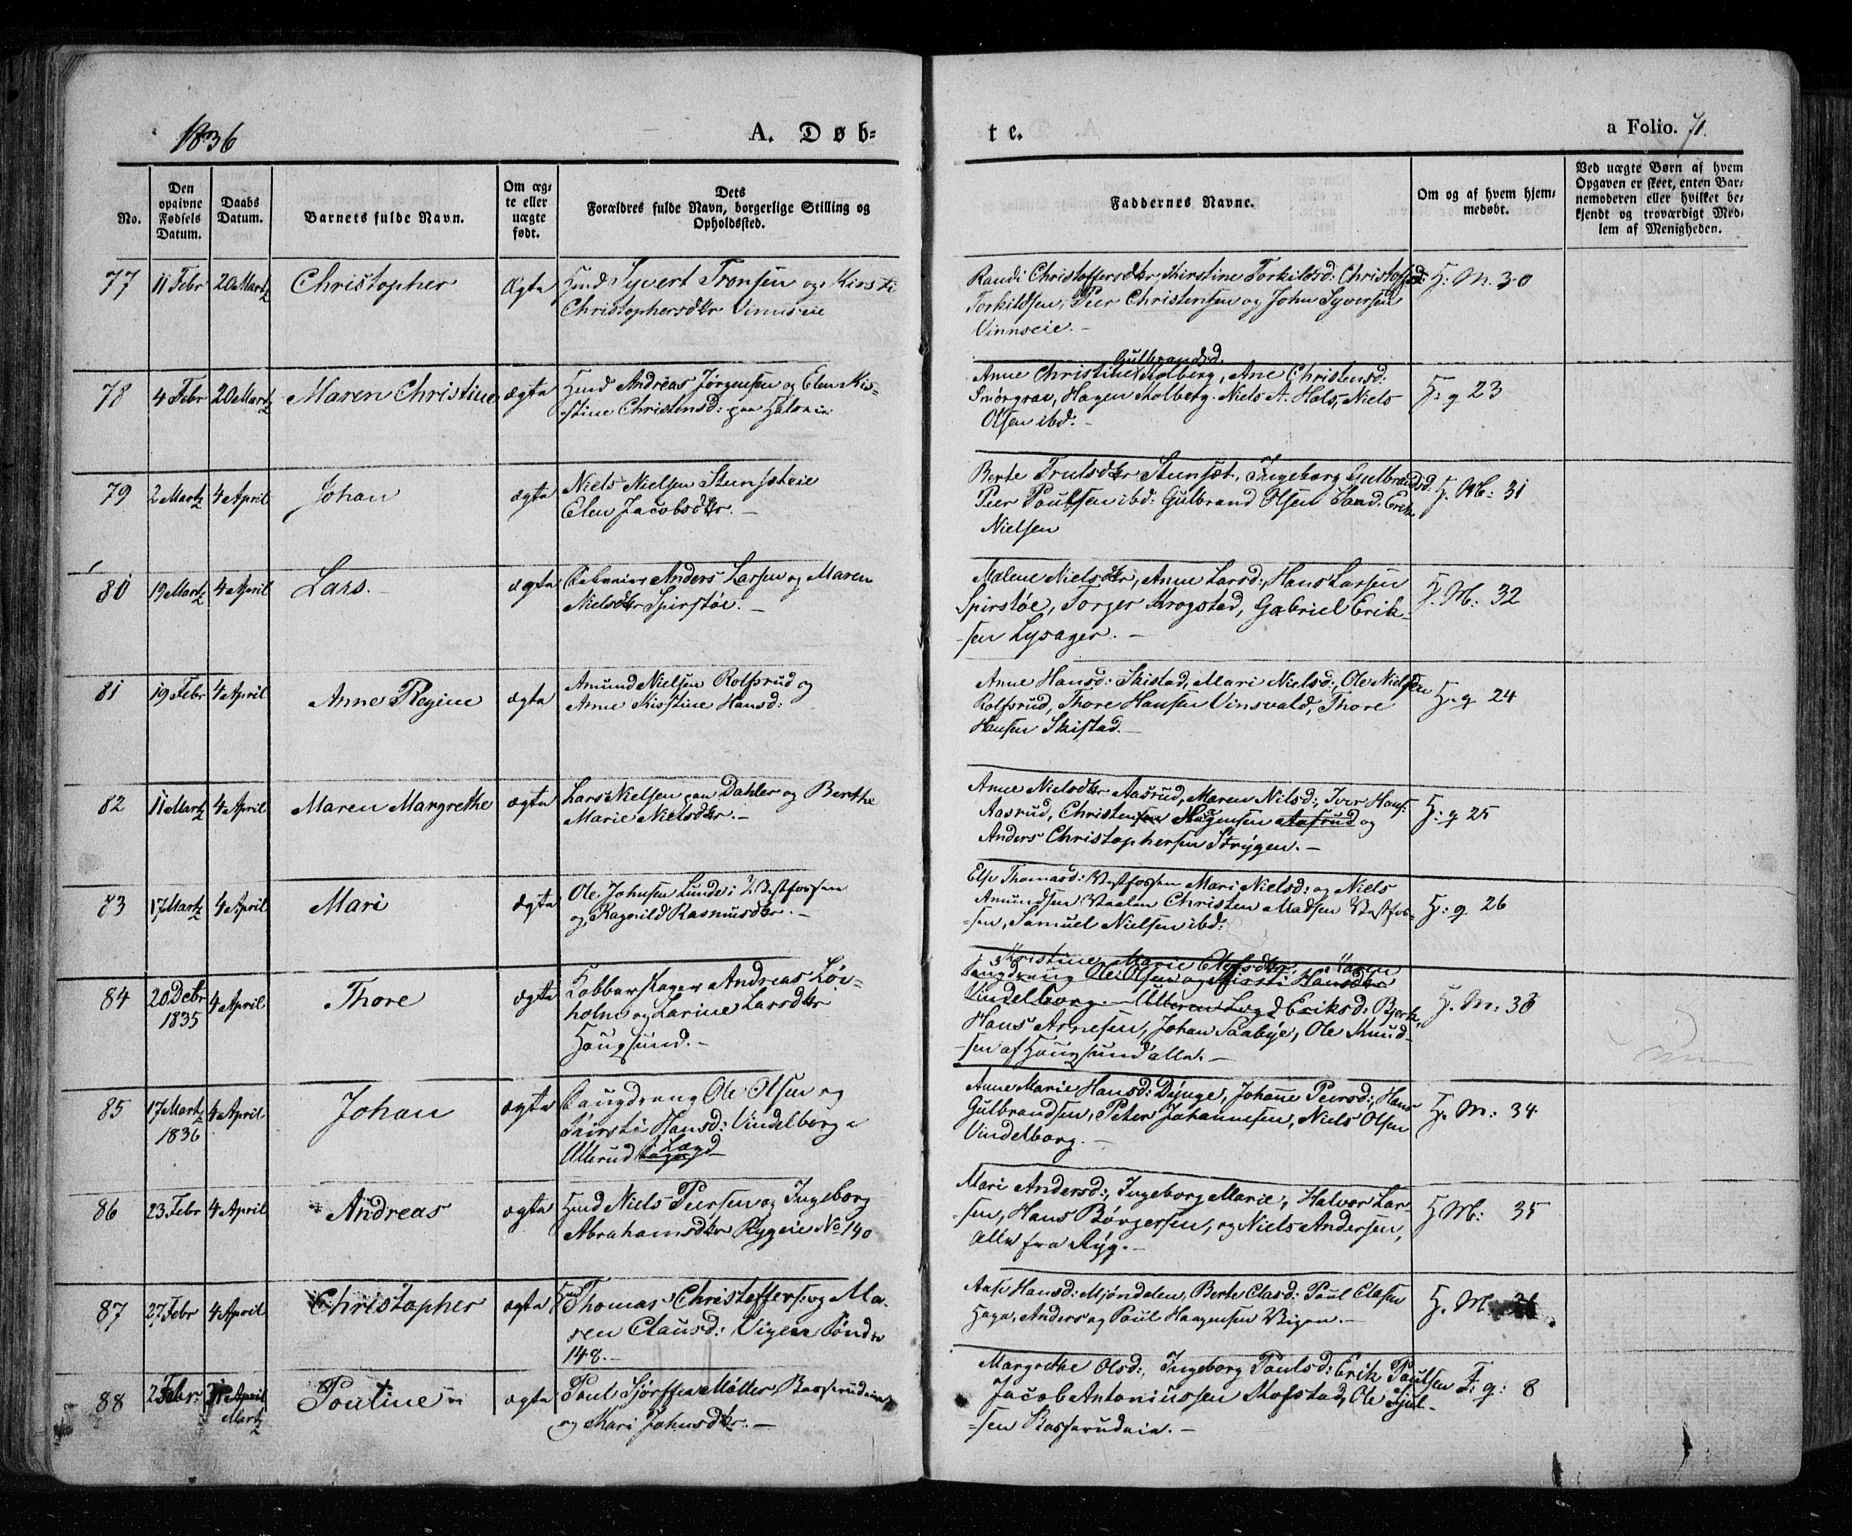 1836
A. Døb-
te.
a Folio. 71.
No.
Den opgivne Fødsels Datum.
Daabs Datum.
Barnets fulde Navn.
Om ægte eller uægte født.
Dets Forældres fulde Navn, borgerlige Stilling og Opholdssted.
Faddernes Navne.
Om og af hvem hjemmedøbt.
Ved uægte Børn af hvem Opgaven er skeet, enten Barnemoderen eller hvilket bekjendt og troværdigt Medlem af Menigheden.
77 11 Febr 20 Martz Christopher Ægte Huusd Syvert Tronsen og Kirsti
Christophersdtr Vinnseie
Randi Christoffersdtr, Kirstine Torkilsd: Christoffer
Torkildsen, Peer Christensen og John Syversen
Vinnseie.-
H. M. 30
78 4 Febr 20 Martz Maren Christine ægte Huusd Andreas Jørgensen og Elen Ki-
stine Christensd: paa
Gulbrandsd.
Anne Christine Stolberg, Ane Christensd:
Smørgrav, Hagen Stolberg. Niels A. Hals, Niels
Olsen ibd:-
H: g 23
79 2 Martz 4 April Johan ægte Niels Nielsen Stensæteie
Elen Jacobsdtr.-
Berte Trulsdtr Stensæt, Ingeborg Gulbrandsd.
Peer Paulsen ibd: Gulbrand Olsen Erik
Nielsen
H. M: 31
80 19 Martz 4 April Lars.- ægte Anders Larsen og Maren
Nielsdtr Spirstøe.-
Malene Nielsdtr, Anne Larsd:, Hans Larsen
Spirstøe, Torger Krogstad, Gabriel Erik-
-sen Lysager.-
H. M: 32
81 19 Febr 4 April Anne Regine ægte Amund Nielsen Rolfsrud og
Anne Kistine Hansd:
Anne Hansd: Skistad, Mari Nielsd:, Ole Nielsen
Rolfsrud, Thore Hansen Vinsvald, Thore
Hansen Skistad.-
H. g 24
82 11 Martz 4 April Maren Margrethe ægte Lars Nielsen paa Dahler og Berthe
Marie Nielsdtr.-
Anne Nielsdtr Aasrud, Maren Nilsd:, Iver Hans:
Aasrud, Christensen Hagensen Aasrud og
Anders Christophersen Strygen.-
H: g 25
83 17 Martz 4 April Mari ægte Ole Johnsen Lunde i Vestfossen
og Ragnild Rasmusdtr.-
Else Thomasd: Vestfossen Mari Nielsd: og Niels
Amundsen Christen Madsen Vestfos-
-sen, Samuel Nielsen ibd:
H: g 26
84 20 Debr 1835 4 April Thore ægte Kobberslager Andreas Løv-
holm og Larine Larsdtr
Hougsund.-
Kristine Marie Olefsdtr, Karen
Baugdreng Ole Olsen og Kirsti Hansdtr
Vindelborg- Ulleren Lagd Eriksd: Bjerk,
Hans Arnesen, Johan Saabye, Ole Knud-
-sen af Hougsund alle.-
H. M: 33
85 17 Martz 1836 4 April Johan ægte Baugdreng Ole Olsen og
Kirsti Hansd: Vindelborg
Ullerud Lagd
Anne Marie Hansd: Dynge, Johanne Peersd:, Hans
Gulbrandsen, Peter Johannesen, Niels Olsen
Vindelborg.-
H. M: 34
86 23 Febr 4 April Andreas ægte Huusd Niels Peersen og Ingeborg
Abrahamsdtr Rygeie No 140
Mari Andersd:, Ingeborg Marie, Halvor Lar-
-sen, Hans Børgersen, og Niels Andersen,
alle fra Ryg.-
H M: 35
87 27 Febr 4 April Christopher ægte Huusd Thomas Christoffers: og Ma-
ren Clausd: Vigen Søndre
148.-
Aase Hansd: Mjøndalen, Berte Clasd: Paul Clasen
Haga, Anders og Paul Haagensen Vigen.-
H. M 36
88 2 Febr: 31 April Martz Pouline ægte Paul Sjørssen Møller Basserudeie
og Mari Johnsdtr.-
Margrethe Olsd:, Ingeborg Paulsd: Erik Paulsen
Jacob Antoniussen Mofstad, Ole Sjul-
-sen Basserudeie.-
F. g: 8